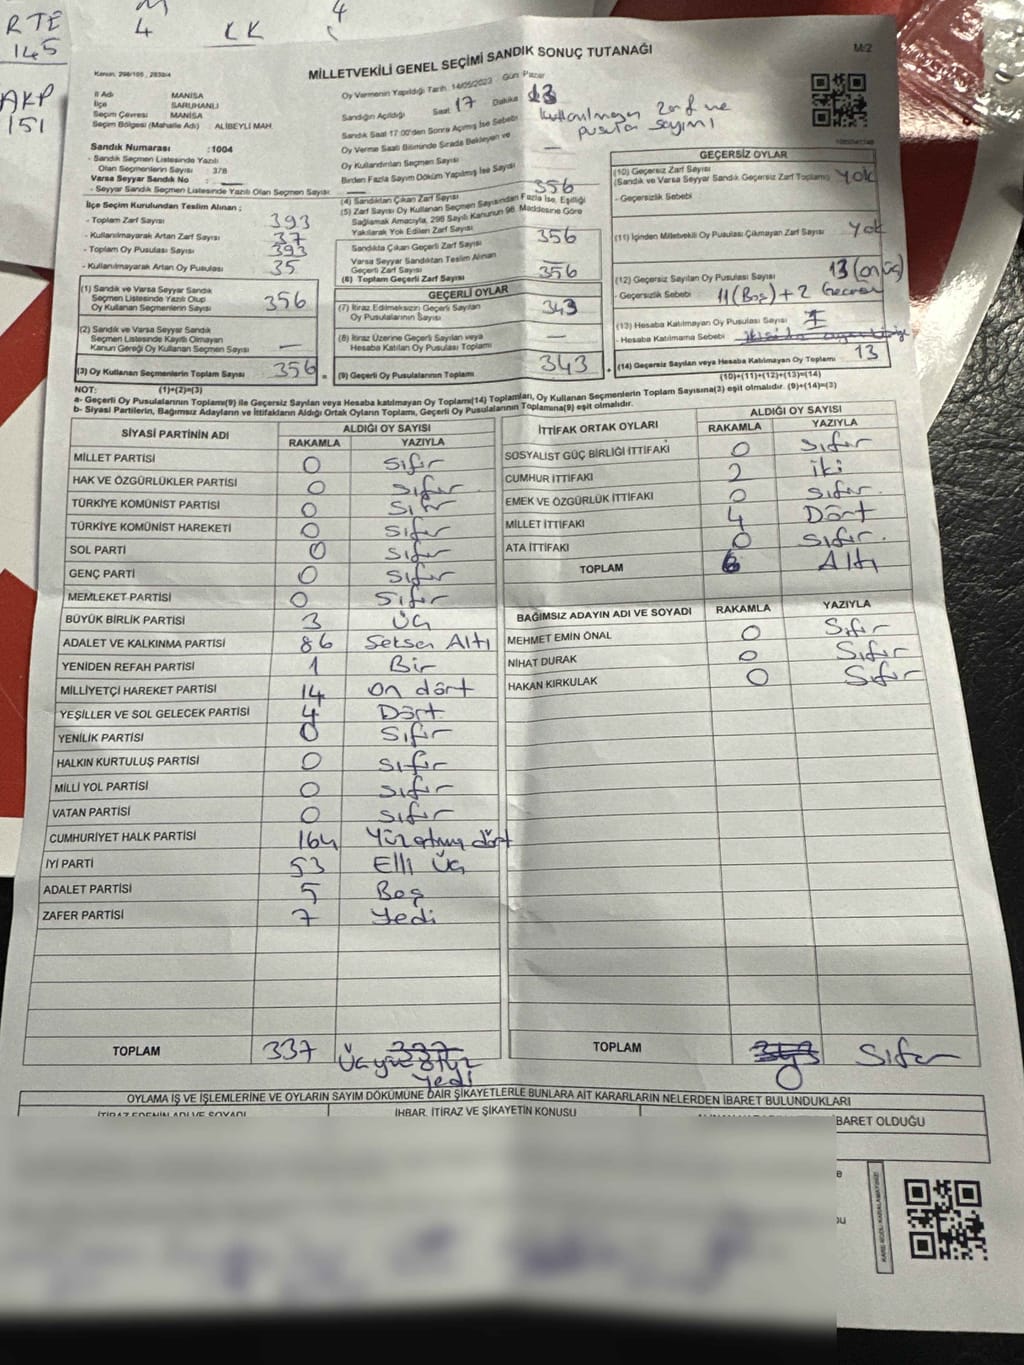 RTE
145
4
KK
4
AKP
151
MİLLETVEKİLİ GENEL SEÇİMİ SANDIK SONUÇ TUTANAĞI
M/2
İl Adı MANİSA
İlçe SARUHANLI
Seçim Çevresi MANİSA
Seçim Bölgesi (Mahalle Adı) : ALİBEYLİ MAH.
Sandık Numarası :1004
- Sandık Seçmen Listesinde Yazılı
Olan Seçmenlerin Sayısı : 378
Varsa Seyyar Sandık No : —
- Seyyar Sandık Seçmen Listesinde Yazılı Olan Seçmen Sayısı: —
İlçe Seçim Kurulundan Teslim Alınan ;
- Toplam Zarf Sayısı 393
- Kullanılmayarak Artan Zarf Sayısı 37
- Toplam Oy Pusulası Sayısı 393
- Kullanılmayarak Artan Oy Pusulası 35
(1) Sandık ve Varsa Seyyar Sandık
Seçmen Listesinde Yazılı Olup
Oy Kullanan Seçmenlerin Sayısı 356
(2) Sandık ve Varsa Seyyar Sandık
Seçmen Listesinde Kayıtlı Olmayan
Kanun Gereği Oy Kullanan Seçmen Sayısı —
(3) Oy Kullanan Seçmenlerin Toplam Sayısı 356 =
Oy Vermenin Yapıldığı Tarih: 14/05/2023 Gün: Pazar
Sandığın Açıldığı Saat 17 Dakika 13
Sandık Saat 17:00'den Sonra Açılmış İse Sebebi Kullanılmayan Zarf ve
pusula sayımı
Oy Verme Saati Bitiminde Sırada Bekleyen ve
Oy Kullandırılan Seçmen Sayısı —
Birden Fazla Sayım Döküm Yapılmış İse Sayısı —
(4) Sandıktan Çıkan Zarf Sayısı 356
(5) Zarf Sayısı Oy Kullanan Seçmen Sayısından Fazla İse, Eşitliği
Sağlamak Amacıyla, 298 Sayılı Kanunun 98. Maddesine Göre
Yakılarak Yok Edilen Zarf Sayısı
Sandıkta Çıkan Geçerli Zarf Sayısı 356
Varsa Seyyar Sandıktan Teslim Alınan
Geçerli Zarf Sayısı —
(6) Toplam Geçerli Zarf Sayısı 356
GEÇERLİ OYLAR
(7) İtiraz Edilmeksizin Geçerli Sayılan
Oy Pusulalarının Sayısı 343
(8) İtiraz Üzerine Geçerli Sayılan veya
Hesaba Katılan Oy Pusulası Toplamı —
(9) Geçerli Oy Pusulalarının Toplamı 343 +
GEÇERSİZ OYLAR
(10) Geçersiz Zarf Sayısı
(Sandık ve Varsa Seyyar Sandık Geçersiz Zarf Toplamı) Yok
- Geçersizlik Sebebi
(11) İçinden Milletvekili Oy Pusulası Çıkmayan Zarf Sayısı Yok
(12) Geçersiz Sayılan Oy Pusulası Sayısı 13 (on üç)
- Geçersizlik Sebebi 11 (Boş) + 2
(13) Hesaba Katılmayan Oy Pusulası Sayısı
- Hesaba Katılmama Sebebi
(14) Geçersiz Sayılan veya Hesaba Katılmayan Oy Toplamı 13
(10)+(11)+(12)+(13)=(14)
NOT: (1)+(2)=(3)
a- Geçerli Oy Pusulalarının Toplamı(9) ile Geçersiz Sayılan veya Hesaba katılmayan Oy Toplamı(14) Toplamları, Oy Kullanan Seçmenlerin Toplam Sayısına(3) eşit olmalıdır. (9)+(14)=(3)
b- Siyasi Partilerin, Bağımsız Adayların ve İttifakların Aldığı Ortak Oyların Toplamı, Geçerli Oy Pusulalarının Toplamına(9) eşit olmalıdır.
SİYASİ PARTİNİN ADI ALDIĞI OY SAYISI
RAKAMLA YAZIYLA
MİLLET PARTİSİ 0 Sıfır
HAK VE ÖZGÜRLÜKLER PARTİSİ 0 Sıfır
TÜRKİYE KOMÜNİST PARTİSİ 0 Sıfır
TÜRKİYE KOMÜNİST HAREKETİ 0 Sıfır
SOL PARTİ 0 Sıfır
GENÇ PARTİ 0 Sıfır
MEMLEKET PARTİSİ 0 Sıfır
BÜYÜK BİRLİK PARTİSİ 3 Üç
ADALET VE KALKINMA PARTİSİ 86 Seksen Altı
YENİDEN REFAH PARTİSİ 1 Bir
MİLLİYETÇİ HAREKET PARTİSİ 14 On dört
YEŞİLLER VE SOL GELECEK PARTİSİ 4 Dört
YENİLİK PARTİSİ 0 Sıfır
HALKIN KURTULUŞ PARTİSİ 0 Sıfır
MİLLİ YOL PARTİSİ 0 Sıfır
VATAN PARTİSİ 0 Sıfır
CUMHURİYET HALK PARTİSİ 164 Yüzatmış dört
İYİ PARTİ 53 Elli Üç
ADALET PARTİSİ 5 Beş
ZAFER PARTİSİ 7 Yedi
TOPLAM 337 337 Üçyüz Otuz
Yedi
İTTİFAK ORTAK OYLARI ALDIĞI OY SAYISI
RAKAMLA YAZIYLA
SOSYALİST GÜÇ BİRLİĞİ İTTİFAKI 0 Sıfır
CUMHUR İTTİFAKI 2 İki
EMEK VE ÖZGÜRLÜK İTTİFAKI 0 Sıfır
MİLLET İTTİFAKI 4 Dört
ATA İTTİFAKI 0 Sıfır.
TOPLAM 6 Altı
BAĞIMSIZ ADAYIN ADI VE SOYADI RAKAMLA YAZIYLA
MEHMET EMİN ÖNAL 0 Sıfır
NİHAT DURAK 0 Sıfır
HAKAN KIRKULAK 0 Sıfır
TOPLAM 343 0 Sıfır
OYLAMA İŞ VE İŞLEMLERİNE VE OYLARIN SAYIM DÖKÜMÜNE DAİR ŞİKAYETLERLE BUNLARA AİT KARARLARIN NELERDEN İBARET BULUNDUKLARI
İTİRAZ EDENİN ADI VE SOYADI İHBAR, İTİRAZ VE ŞİKAYETİN KONUSU BARET OLDUĞU